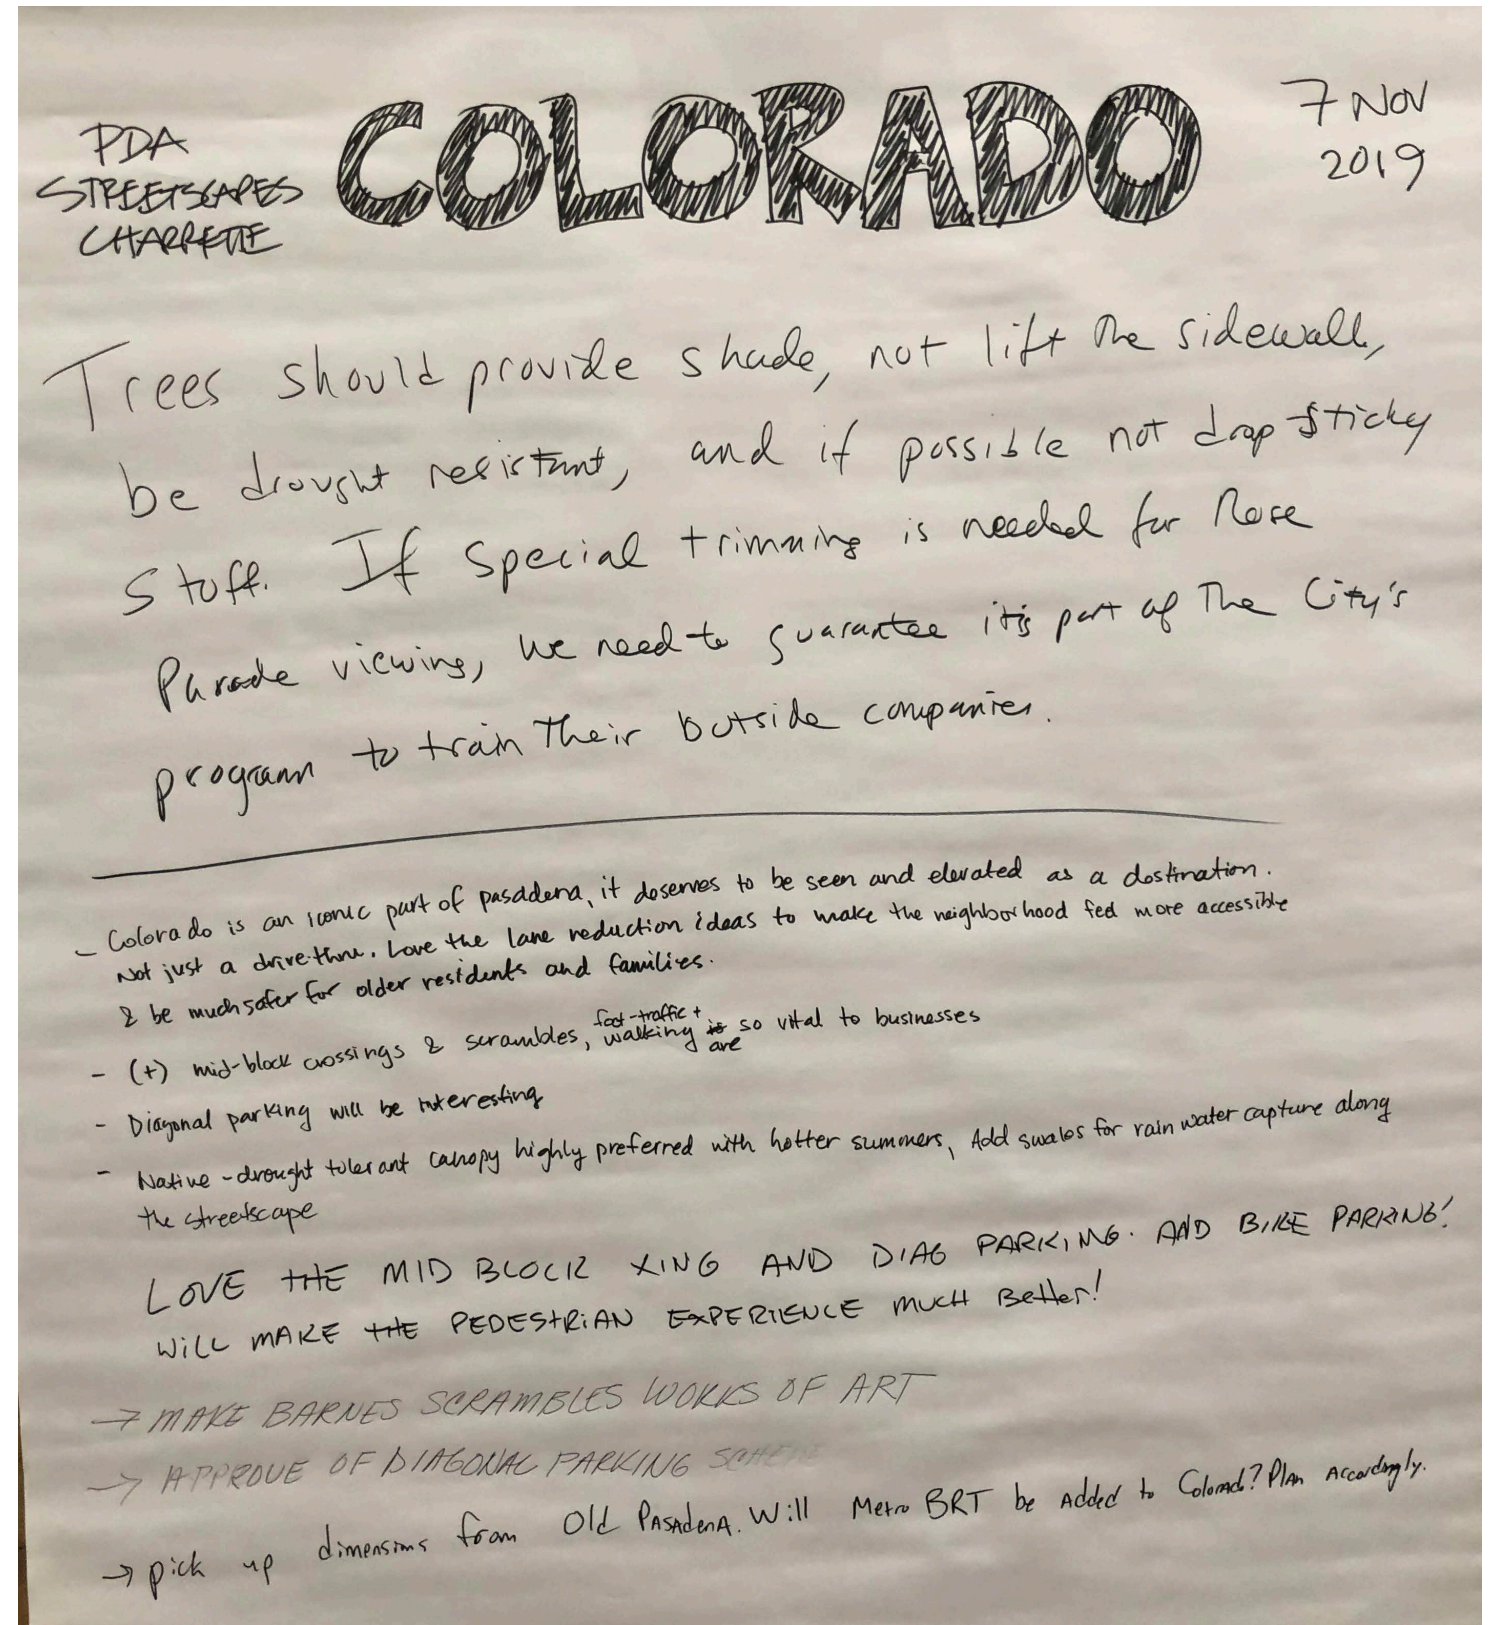 PDA
STREETSCAPES
CHARRETTE
COLORADO
7 NOV
2019
Trees should provide shade, not lift the sidewalk,
be drought resistant, and if possible not drop sticky
stuff. If special trimming is needed for Rose
Parade viewing, we need to guarantee it's part of the City's
program to train their outside companies.
- Colorado is an iconic part of pasadena, it deserves to be seen and elevated as a destination.
Not just a drive-thru. Love the lane reduction ideas to make the neighborhood feel more accessible
& be much safer for older residents and families.
- (+) mid-block crossings & scrambles, foot-traffic + walking are so vital to businesses
- Diagonal parking will be interesting
- Native-drought tolerant canopy highly preferred with hotter summers, Add swales for rain water capture along
the streetscape
LOVE THE MID BLOCK XING AND DIAG PARKING. AND BIKE PARKING!
WILL MAKE THE PEDESTRIAN EXPERIENCE MUCH Better!
→ MAKE BARNES SCRAMBLES WORKS OF ART
→ APPROVE OF DIAGONAL PARKING SCHEME
→ pick up dimensions from Old PASAdenA. Will Metro BRT be Added to Colorado? Plan Accordingly.